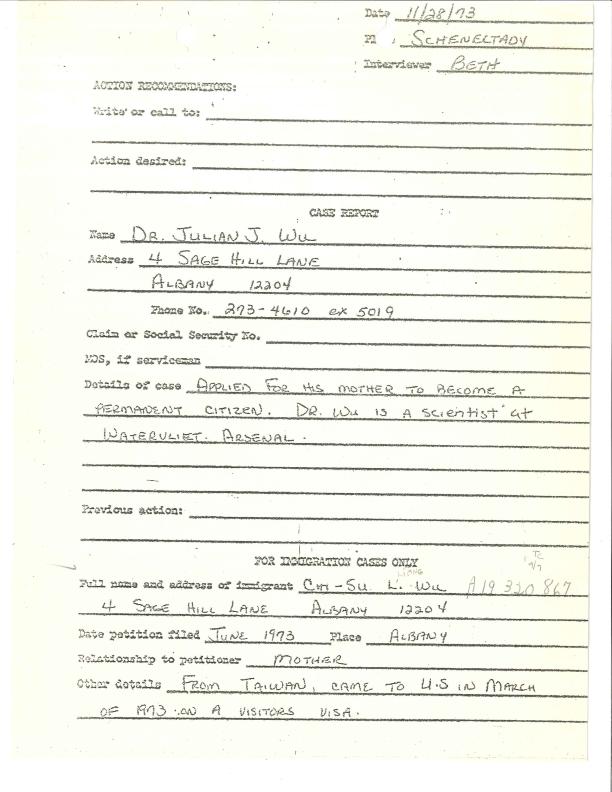 Date 11/28/73
Pl , SCHENELTADY
Interviewer BETH
ACTION RECOMMENDATIONS:
Write or call to:
Action desired:
CASE REPORT
Name DR. JULIAN J. WU
Address 4 SAGE HILL LANE
ALBANY 12204
Phone No. 273-4610 ex 5019
Claim or Social Security No.
MOS, if serviceman
Details of case APPLIED FOR HIS MOTHER TO BECOME A
PERMANENT CITIZEN. DR. WU IS A SCIENTIST AT
WATERVLIET ARSENAL.
Previous action:
FOR IMMIGRATION CASES ONLY
Full name and address of immigrant -SU L. WU A19 320 867
4 SAGE HILL LANE ALBANY 12204
Date petition filed JUNE 1973 Place ALBANY
Relationship to petitioner MOTHER
Other details FROM TAIWAN, CAME TO U.S IN MARCH
OF 1973 ON A VISITORS VISA.